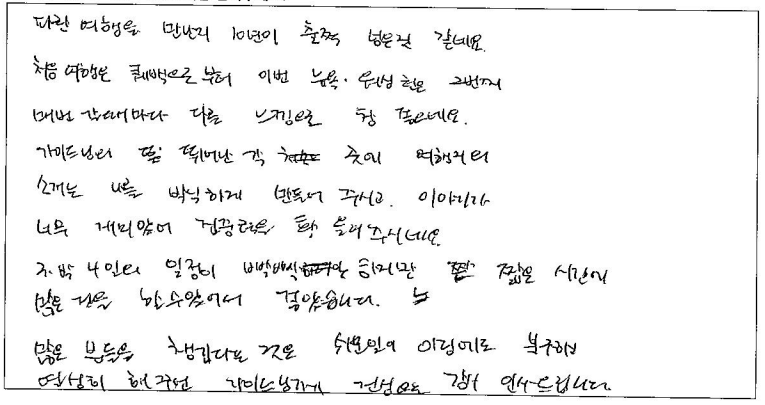 파란 여행을 만난지 10년이 훌쩍 넘은것 같네요
처음 여행은 퀘백으로 부터 이번 뉴욕·워싱턴은 2번째
매번 갈때마다 다른 느낌으로 참 좋으네요.
가이드님의 뛰어난 각 곳에 여행지의
소개는 나를 박식하게 만들어 주시고 이야기가
너무 재미있어 궁금증을 확 풀어주시네요
3박 4일의 일정이 빡빡 하지만 짧은 시간에
많은 것을 할수있어서 좋았습니다.
많은 분들을 챙긴다는 것은 쉬운일이 아님에도 불구하고
열심히 해주신 가이드님께 진심으로 감사 인사드립니다.